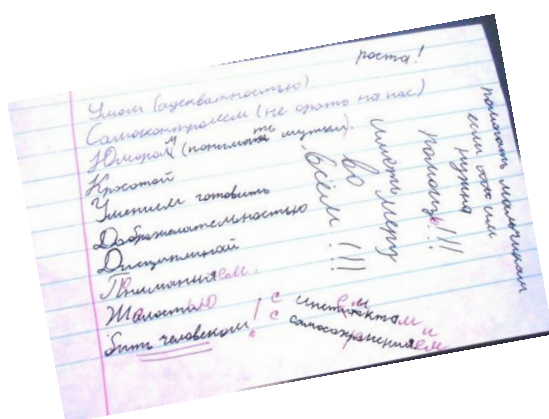 роста!
Умом (адекватностью)
Самоконтролем (не орать на нас)
Юмором (понимать шутки).
Красотой
Умением готовить
Доброжелательностью
Дисциплиной
Пониманием.
Жалостью
Быть человеком! с инстинктами
с самосохранением и
иметь
во
всём меру
!!!
помогать мальчикам
если им
нужна
помощь!!!